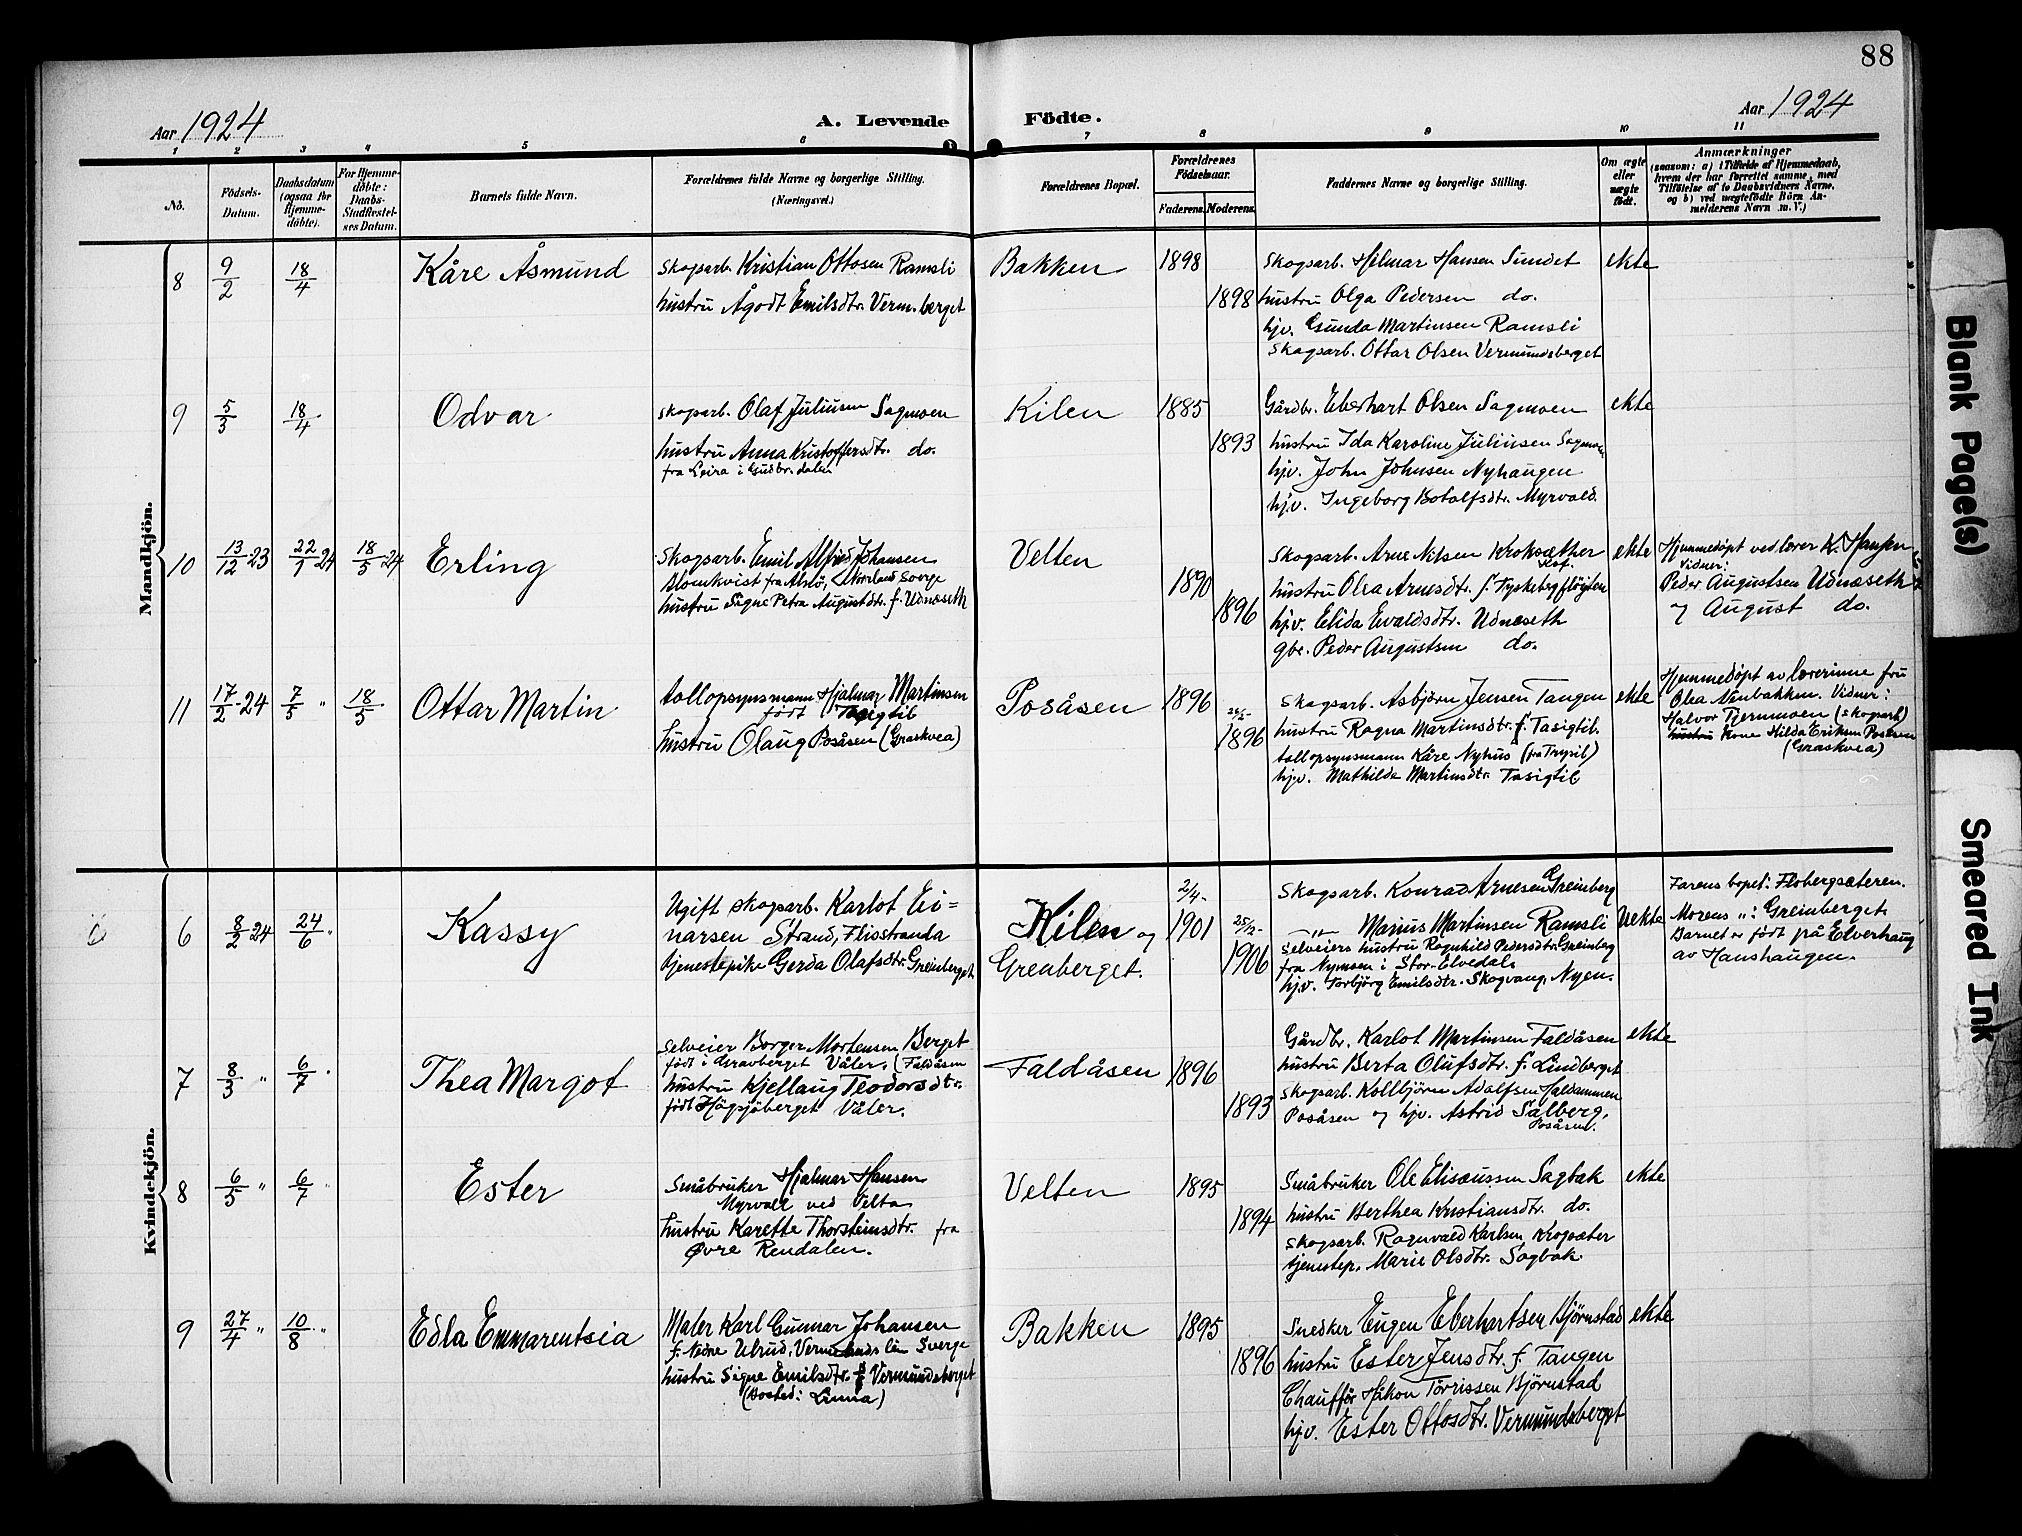 88
Aar 1924
A. Levende
Födte.
Aar 1924
1 2 3 4 5 6 7 8 9 10 11
No.
Födsels-
Datum.
Daabsdatum
(ogsaa for
Hjemme-
döbte).
For Hjemme-
döbte:
Daabs-
Stadfæstel-
ses Datum.
Barnets fulde Navn.
Forældrenes fulde Navne og borgerlige Stilling.
(Næringsvei.)
Forældrenes Bopæl.
Forældrenes
Födselsaar.
Faderens. Moderens.
Faddernes Navne og borgerlige Stilling.
Om ægte
eller
uægte
födt.
Anmærkninger
(saasom: a) i Tilfælde af Hjemmedaab,
hvem der har forrettet samme, med
Tilföielse af to Daabsvidners Navne,
og b) ved uægtefödte Börn An-
melderens Navn m. V.)
Mandkjön.
8
9/2
18/4
Kåre Åsmund
Skogsarb. Kristian Ottosen Ramsli
hustru Ågodt Emilsdtr. Verm.berget
Bakken
1898
1898
Skogsarb. Hilmar Hansen Sundet
hustru Olga Pedersen do.
hjv. Gunda Martinsen Ramsli
Skogsarb. Ottar Olsen Vermundsberget
ekte
9
5/3
18/4
Odvar
skogsarb. Olaf Juliusen Sagmoen
hustru Anna Kristoffersdtr. do.
fra Leira i Gudbr.dalen
Kilen
1885
1893
Gårdbr. Eberhart Olsen Sagmoen
hustru Ida Karoline Juliusen Sagmoen
hjv. John Johnsen Nyhaugen
hjv. Ingeborg Botolfsdtr. Myrvold.
ekte
10
13/12-23
22/1-24
18/5-24
Erling
Skogsarb. Emil Alfred Johansen
Blomkvist fra Alsiö, Norland Sverge
hustru Signe Petra Augustdtr. f. Udnæseth
Velten
1890
1896
Skogsarb. Arne Nilsen Kroksæther
hustru Olea Arnesdtr. f. Tyskebergfløyten
hjv. Elida Evaldsdtr. Udnæseth
gbr. Peder Augustsen do.
ekte
Hjemmedøpt ved lærer K. Hansen
Vidner:
Peder Augustsen Udnæseth
og August do.
11
17/2-24
7/5 "
18/5
Ottar Martin
tollopsynsmann Hjalmar Martinsen
født Tasigtil
hustru Olaug Posåsen (Graskvea)
Posåsen
1896
1896
Skogsarb. Asbjørn Jensen Tangen
hustru Ragna Martinsdtr. f. Tasigtil.
tollopsynsmann Kåre Nyhus (fra Trysil)
hjv. Mathilda Martinsdtr. Tasigtil
ekte
Hjemmedøpt av lærerinne fru
Olea Nenbakken. Vidner:
Halvor Tjernmoen (skogsarb)
hustru Kone Hilda Eriksen Posåsen
(Graskvea)
Kvindekjön.
6
8/2-24
24/6 "
Kassy
Ugift skogsarb. Karlot Ei=
narsen Strand, Flisstranda
tjenestepike Gerda Olafsdtr. Greinberget
Kilen og
Grenberget.
2/4-
1901
25/2-
1906
Skogsarb. Konrad Arnesen Greinberg
—"— Marius Martinsen Ramsli
Selveiers hustru Ragnhild Pedersdtr. Greinberg
fra Nymoen i Stor-Elvedal
hjv. Torbjörg Emilsdtr. Skogvang, Nyen.
Uekte
Farens bopel: Flisbergsæteren.
Morens ": Greinberget
Barnet er født på Elverhaug
av Hanshaugen.
7
8/3 "
6/7 "
Thea Margot
selveier Borger Mortensen Berget
født i Gravberget Våler, (Faldåsen
hustru Kjellaug Teodorsdtr.
født Høgsjöberget Våler.
Faldåsen
1896
1893
Gårdbr. Karlot Martinsen Faldåsen
hustru Berta Olufsdtr. f. Lindberget
skogsarb. Kollbjörn Adolfsen Haldammen
Posåsen og hjv. Astrid Sålberg,
Posåsen.
ekte
8
6/5 "
6/7
Ester
Småbruker Hjalmar Hansen
Myrvold ved Velta
hustru Karette Thorsteinsdtr. fra
Øvre Rendalen.
Velten
1895
1894
Småbruker Ole Elisæussen Sagbak
hustru Berthea Kristiansdtr. do.
skogsarb. Ragnvald Karlsen Krogsæter
tjenestep. Marie Olsdtr. Sagbak.
ekte
9
27/4 "
10/8 "
Edla Emmarentsia
Maler Karl Gunnar Johansen
f. Nedre Ulrud, Vermlands län Sverge
hustru Signe Emilsdtr. f. Vermundsberget
(Bosted: Linna)
Bakken
1895
1896
Snedker Eugen Eberhartsen Bjørnstad
hustru Ester Jensdtr. f. Tangen
Chauffør Håkon Tørrissen Bjørnstad
hjv. Ester Ottosdtr. Vermundsberget
ekte
Blank Page(s)
Smeared Ink